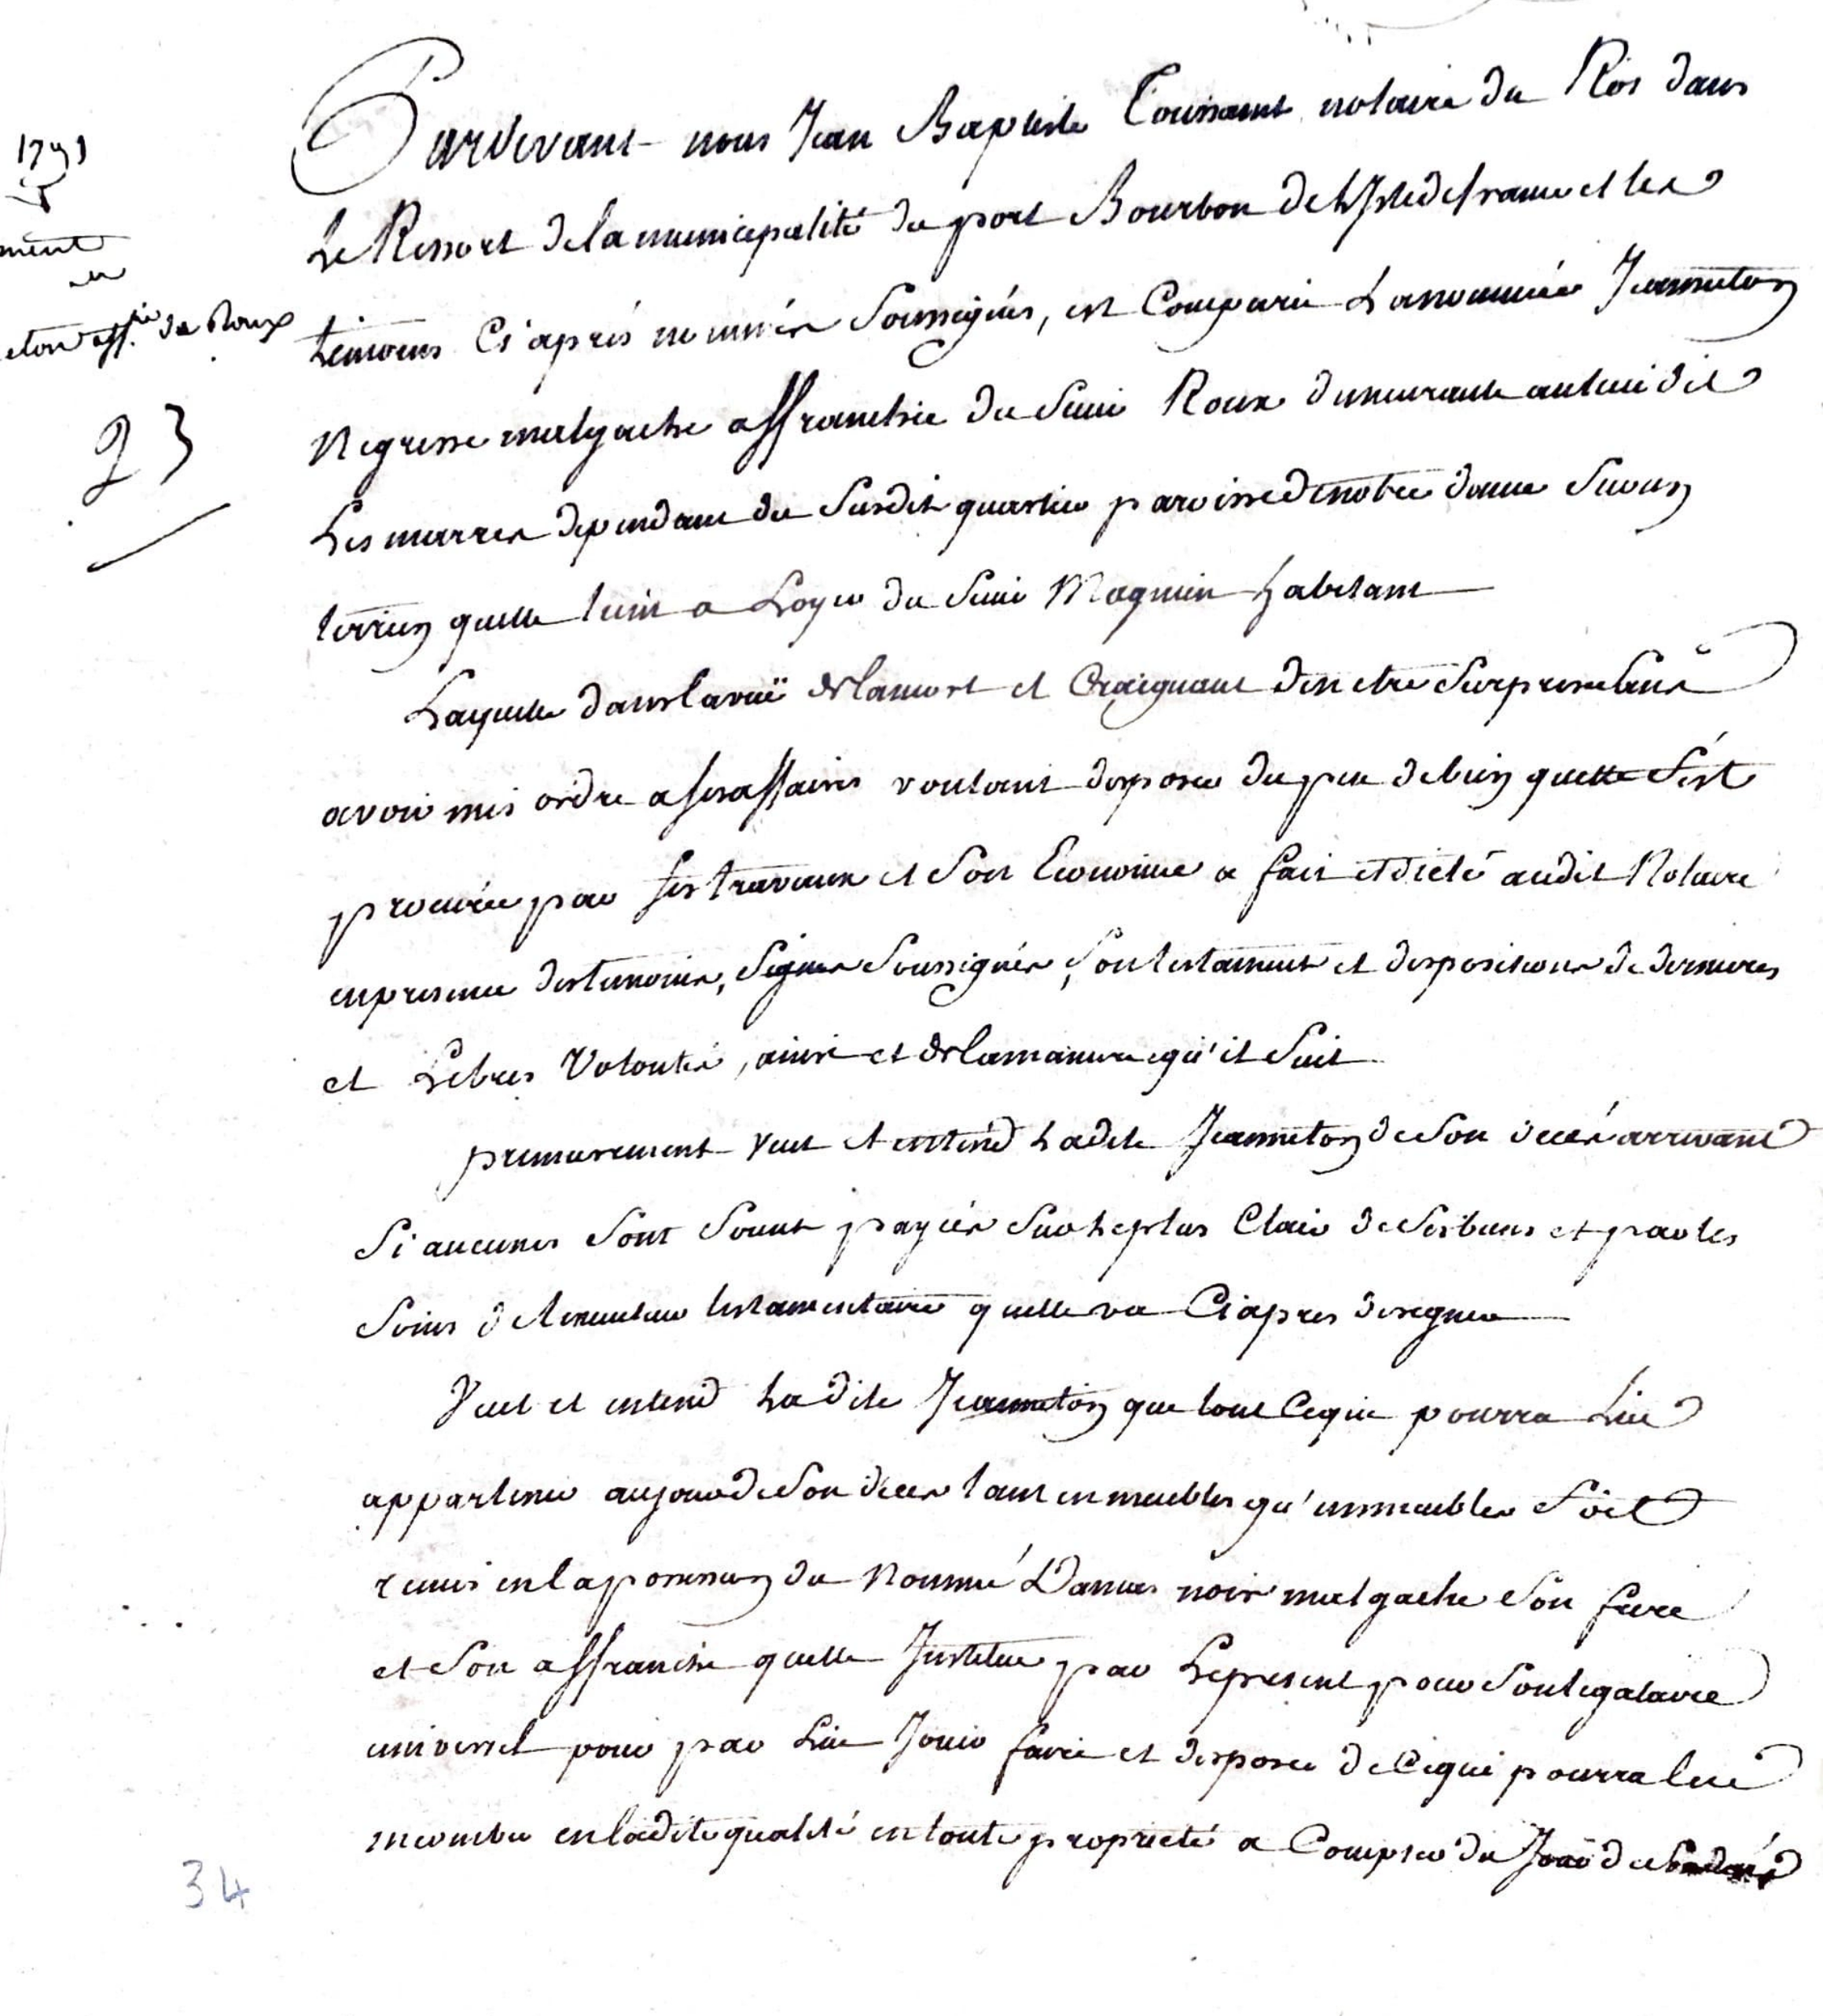 1791
ment
eton aff.ie de Roux
23
Pardevant nous Jean Baptiste Toussaint notaire du Roi dans
Le Ressort de la municipalité du port Bourbon de L'Isle de france et les
temoins Ci après nommés Soussignés, est Comparu La nommée Jeanneton
Negresse malgache affranchie du Sieur Roux demeurante au lieu dit
Les marres dependant du Susdit quartier paroisse de notre dame Sur un
terrien quelle tient a Loyer du Sieur Magnien habitant
Laquelle dans la vuë de la mort et Craignant d'en etre Surprise Sans
avoir mis ordre a ses affaires voulant disposer du peu de bien quelle S'est
procurée par ses travaux et Son Economie a fait et dicté audit Notaire
en presence des temoins, Signes Soussignés, Son testament et dispositions de dernieres
et Libres Volontés, ainsi et de la maniere qu'il Suit
premierement veut et entend Ladite Jeanneton de Son decés arrivant
Si aucunes Sont Soient payées Sur le plus Clair de Ses biens et par les
Soins de l'executeur testamentaire quelle va Ci apres designer
Veut et entend La dite Jeanneton que tout Ce qui pourra Lui
appartenir au jour de Son décés tant en meubles qu'immeubles Soit
remis en la possession du Nommé Damas noir malgache Son frere
et Son affranchi quelle Institue par Le present pour Son legataire
universel pour par Lui Jouir faire et disposer de Ce qui pourra lui
incomber en ladite qualité en toute proprieté a Compter du Jour de
34